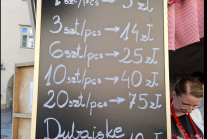 szt/pcs → 5 zł
3szt/pcs → 14 zł
6szt/pcs → 25 zł
10szt/pcs → 40 zł
20szt/pcs → 75 zł
Dubajskie